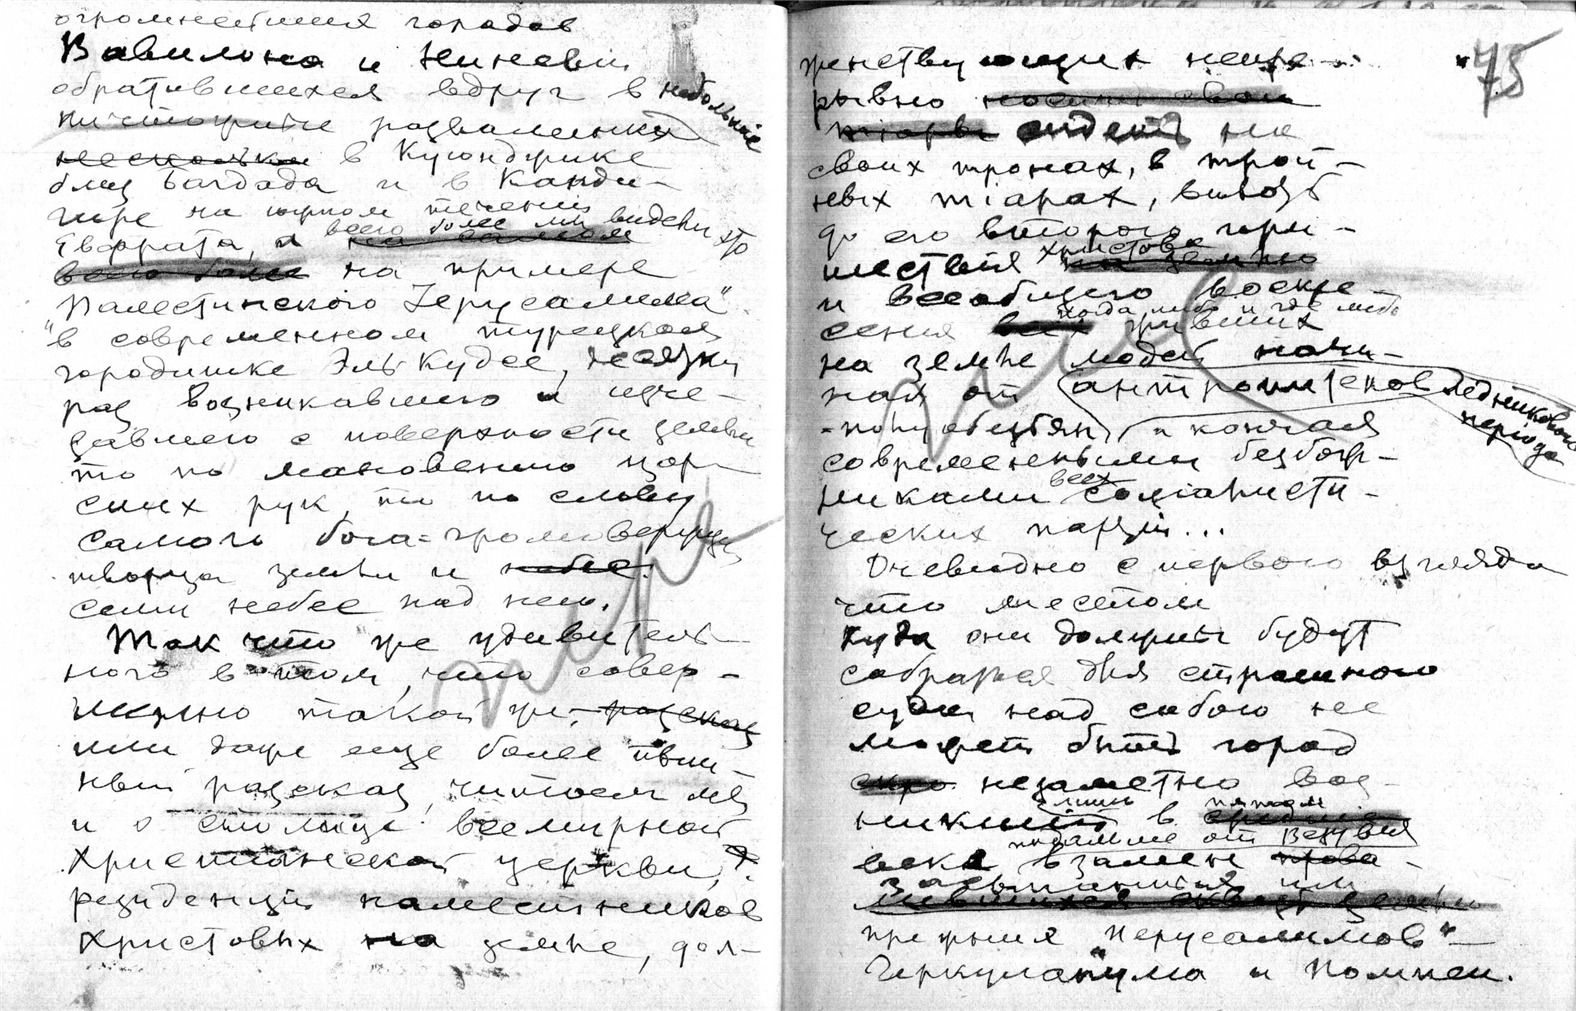 огромнейших городов
Вавилона и Ниневии
обратившихся вдруг в небольшие
ничтожные развалины
несколько в Куюнджике
близ Багдада и в
на южном течении
Евфрата, и всего более мы видели это
на самом
всего более на примере
Палестинского Іерусалима"
"в современном турецком
городишке Эль Кудсе,
раз возникавшего и исче-
завшего с поверхности земли
то по мановению цар-
ских рук, то по слову
самого бога-громовержца
творца земли и небес.
семи небес над нею.
Так что же удивитель-
ного в том, что совер-
шенно такой же рассказ
или даже еще более
рассказ, читаем мы
и о столице всемирной
христианской церкви,
резиденции наместников
Христовых на земле, дол-
75
женствующих непре-
рывно носить свои
тиары сидеть на
своих тронах, в трой-
ных тиарах, вплоть
до его второго при-
шествия Христова на землю
и всеобщего воскре-
сения всех когда либо и где либо живших
на земле людей начи-
ная от антропитеков ледникового періода
-полуобезьян, и кончая
современными безбож-
никами всех соціалисти-
ческих партій...
Очевидно с первого взгляда
что местом
куда они должны будут
собраться для страшного
суда над собою не
может быть город
скро незаметно воз-
никший лишь в пятом средние
века взамен прова-
подалее от Везувия
засыпанных им
лившихся сквозь землю
прежних "Иерусалимов"-
Геркуланума и Помпеи.